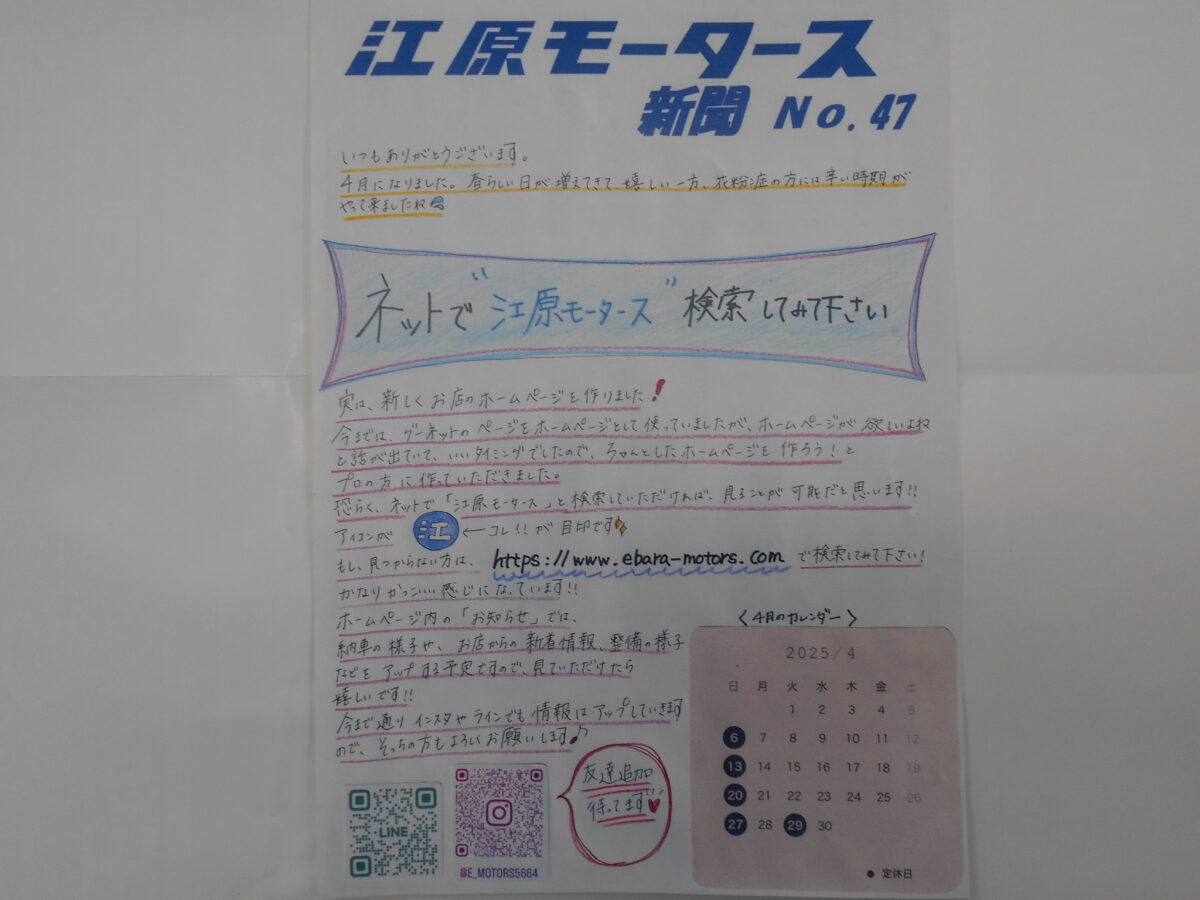 江原モータース
新聞 No.47
いつもありがとうございます。
4月になりました。春らしい日が増えてきて嬉しい一方、花粉症の方には辛い時期が
やって来ましたね
ネットで"江原モータース"検索してみて下さい
実は、新しくお店のホームページを作りました!
今までは、グーネットのページをホームページとして使っていましたが、ホームページが欲しいよね
と話が出ていて、いいタイミングでしたので、ちゃんとしたホームページを作ろう!と
プロの方に作っていただきました。
恐らく、ネットで「江原モータース」と検索していただければ、見ることが可能だと思います!!
アイコンが 江 ←コレ!!が目印です
もし、見つからない方は、https://www.ebara-motors.comで検索してみて下さい!
かなりかっこいい感じになっています!!
ホームページ内の「お知らせ」では、
納車の様子や、お店からの新着情報、整備の様子
などをアップする予定ですので、見ていただけたら
嬉しいです!!
今まで通りインスタやラインでも情報はアップしていきます
ので、そっちの方もよろしくお願いします♪
LINE
@E_MOTORS5664
友達追加
待ってます
〈4月のカレンダー〉
2025/4
日 月 火 水 木 金 土
1 2 3 4 5
6 7 8 9 10 11 12
13 14 15 16 17 18 19
20 21 22 23 24 25 26
27 28 29 30
● 定休日